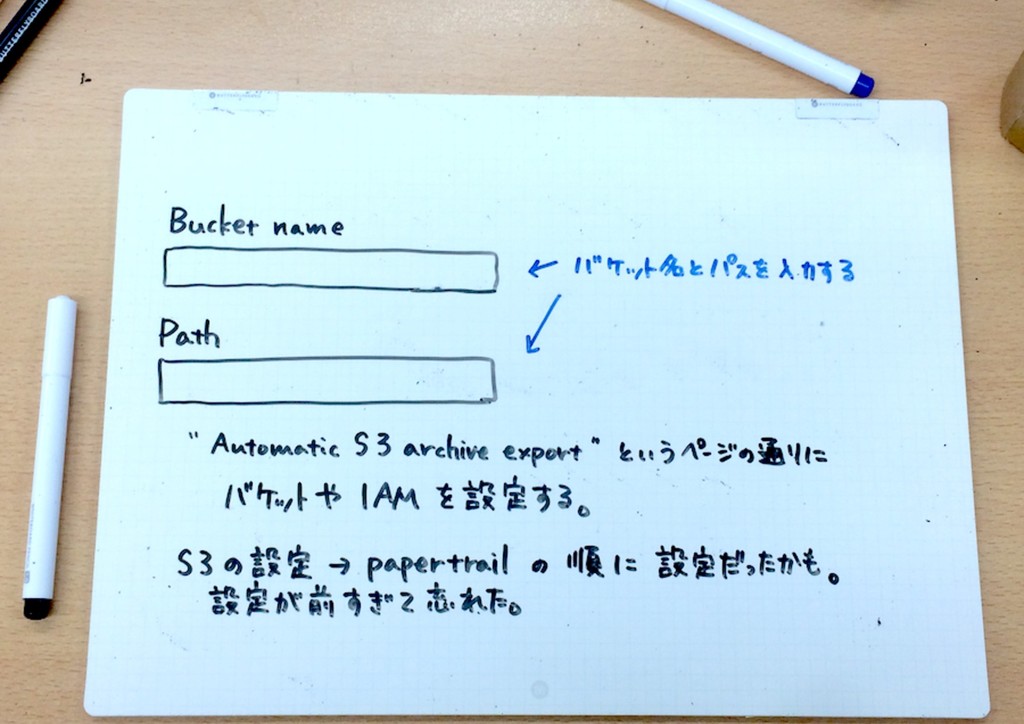 Bucket name
← バケット名とパスを入力する
Path
"Automatic S3 archive export" というページの通りに
バケットや IAM を設定する。
S3の設定 → papertrail の 順に 設定だったかも。
設定が前すぎて忘れた。